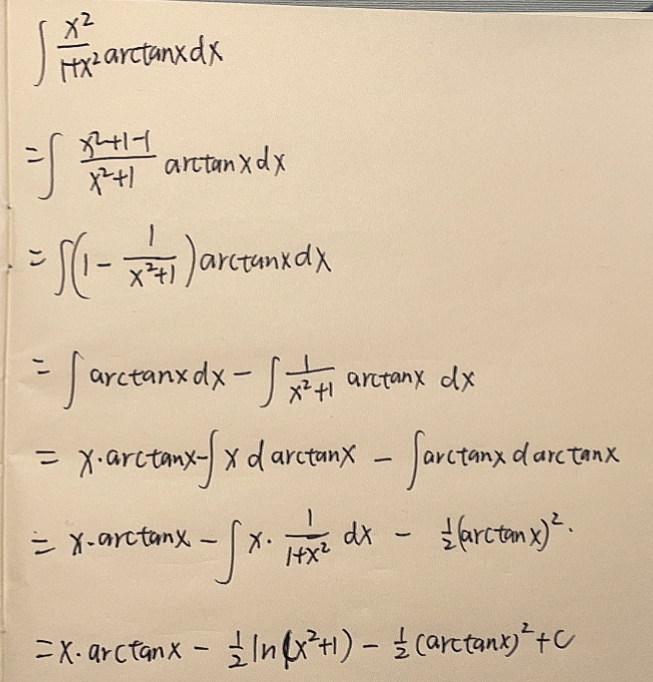 ∫ x²/(1+x²) arctanx dx
= ∫ (x²+1-1)/(x²+1) arctanx dx
= ∫(1 - 1/(x²+1)) arctanx dx
= ∫ arctanx dx - ∫ 1/(x²+1) arctanx dx
= x·arctanx - ∫ x d arctanx - ∫ arctanx d arctanx
= x·arctanx - ∫ x· 1/(1+x²) dx - ½(arctanx)².
= x·arctanx - ½ ln(x²+1) - ½ (arctanx)² + C